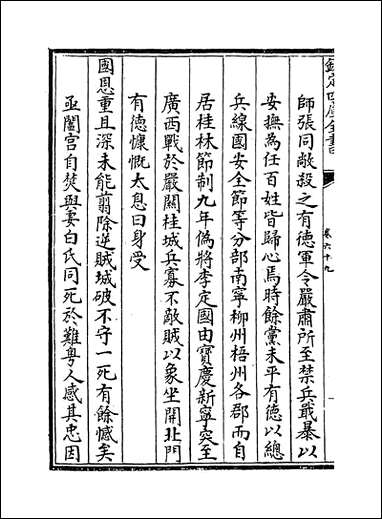 欽定四庫全書
卷六十九
師張同敞殺之有德軍令嚴肅所至禁兵戢暴以
安撫為任百姓皆歸心焉時餘黨未平有德以總
兵線國安全節等分部南寧柳州梧州各郡而自
居桂林節制九年偽將李定國由寶慶新寧突至
廣西戰於嚴關桂城兵寡不敵賊以象坐開北門
有德慷慨太息曰身受
國恩重且深未能翦除逆賊城破不守一死有餘憾矣
亟闔宫自焚與妻白氏同死於難粤人感其忠因